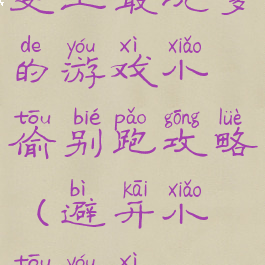 de yóu xì xiǎo
的游戏小
tōu bié pǎo gōng lüè
偷别跑攻略
bì kāi xiǎo
(避开小
tōu yóu xì